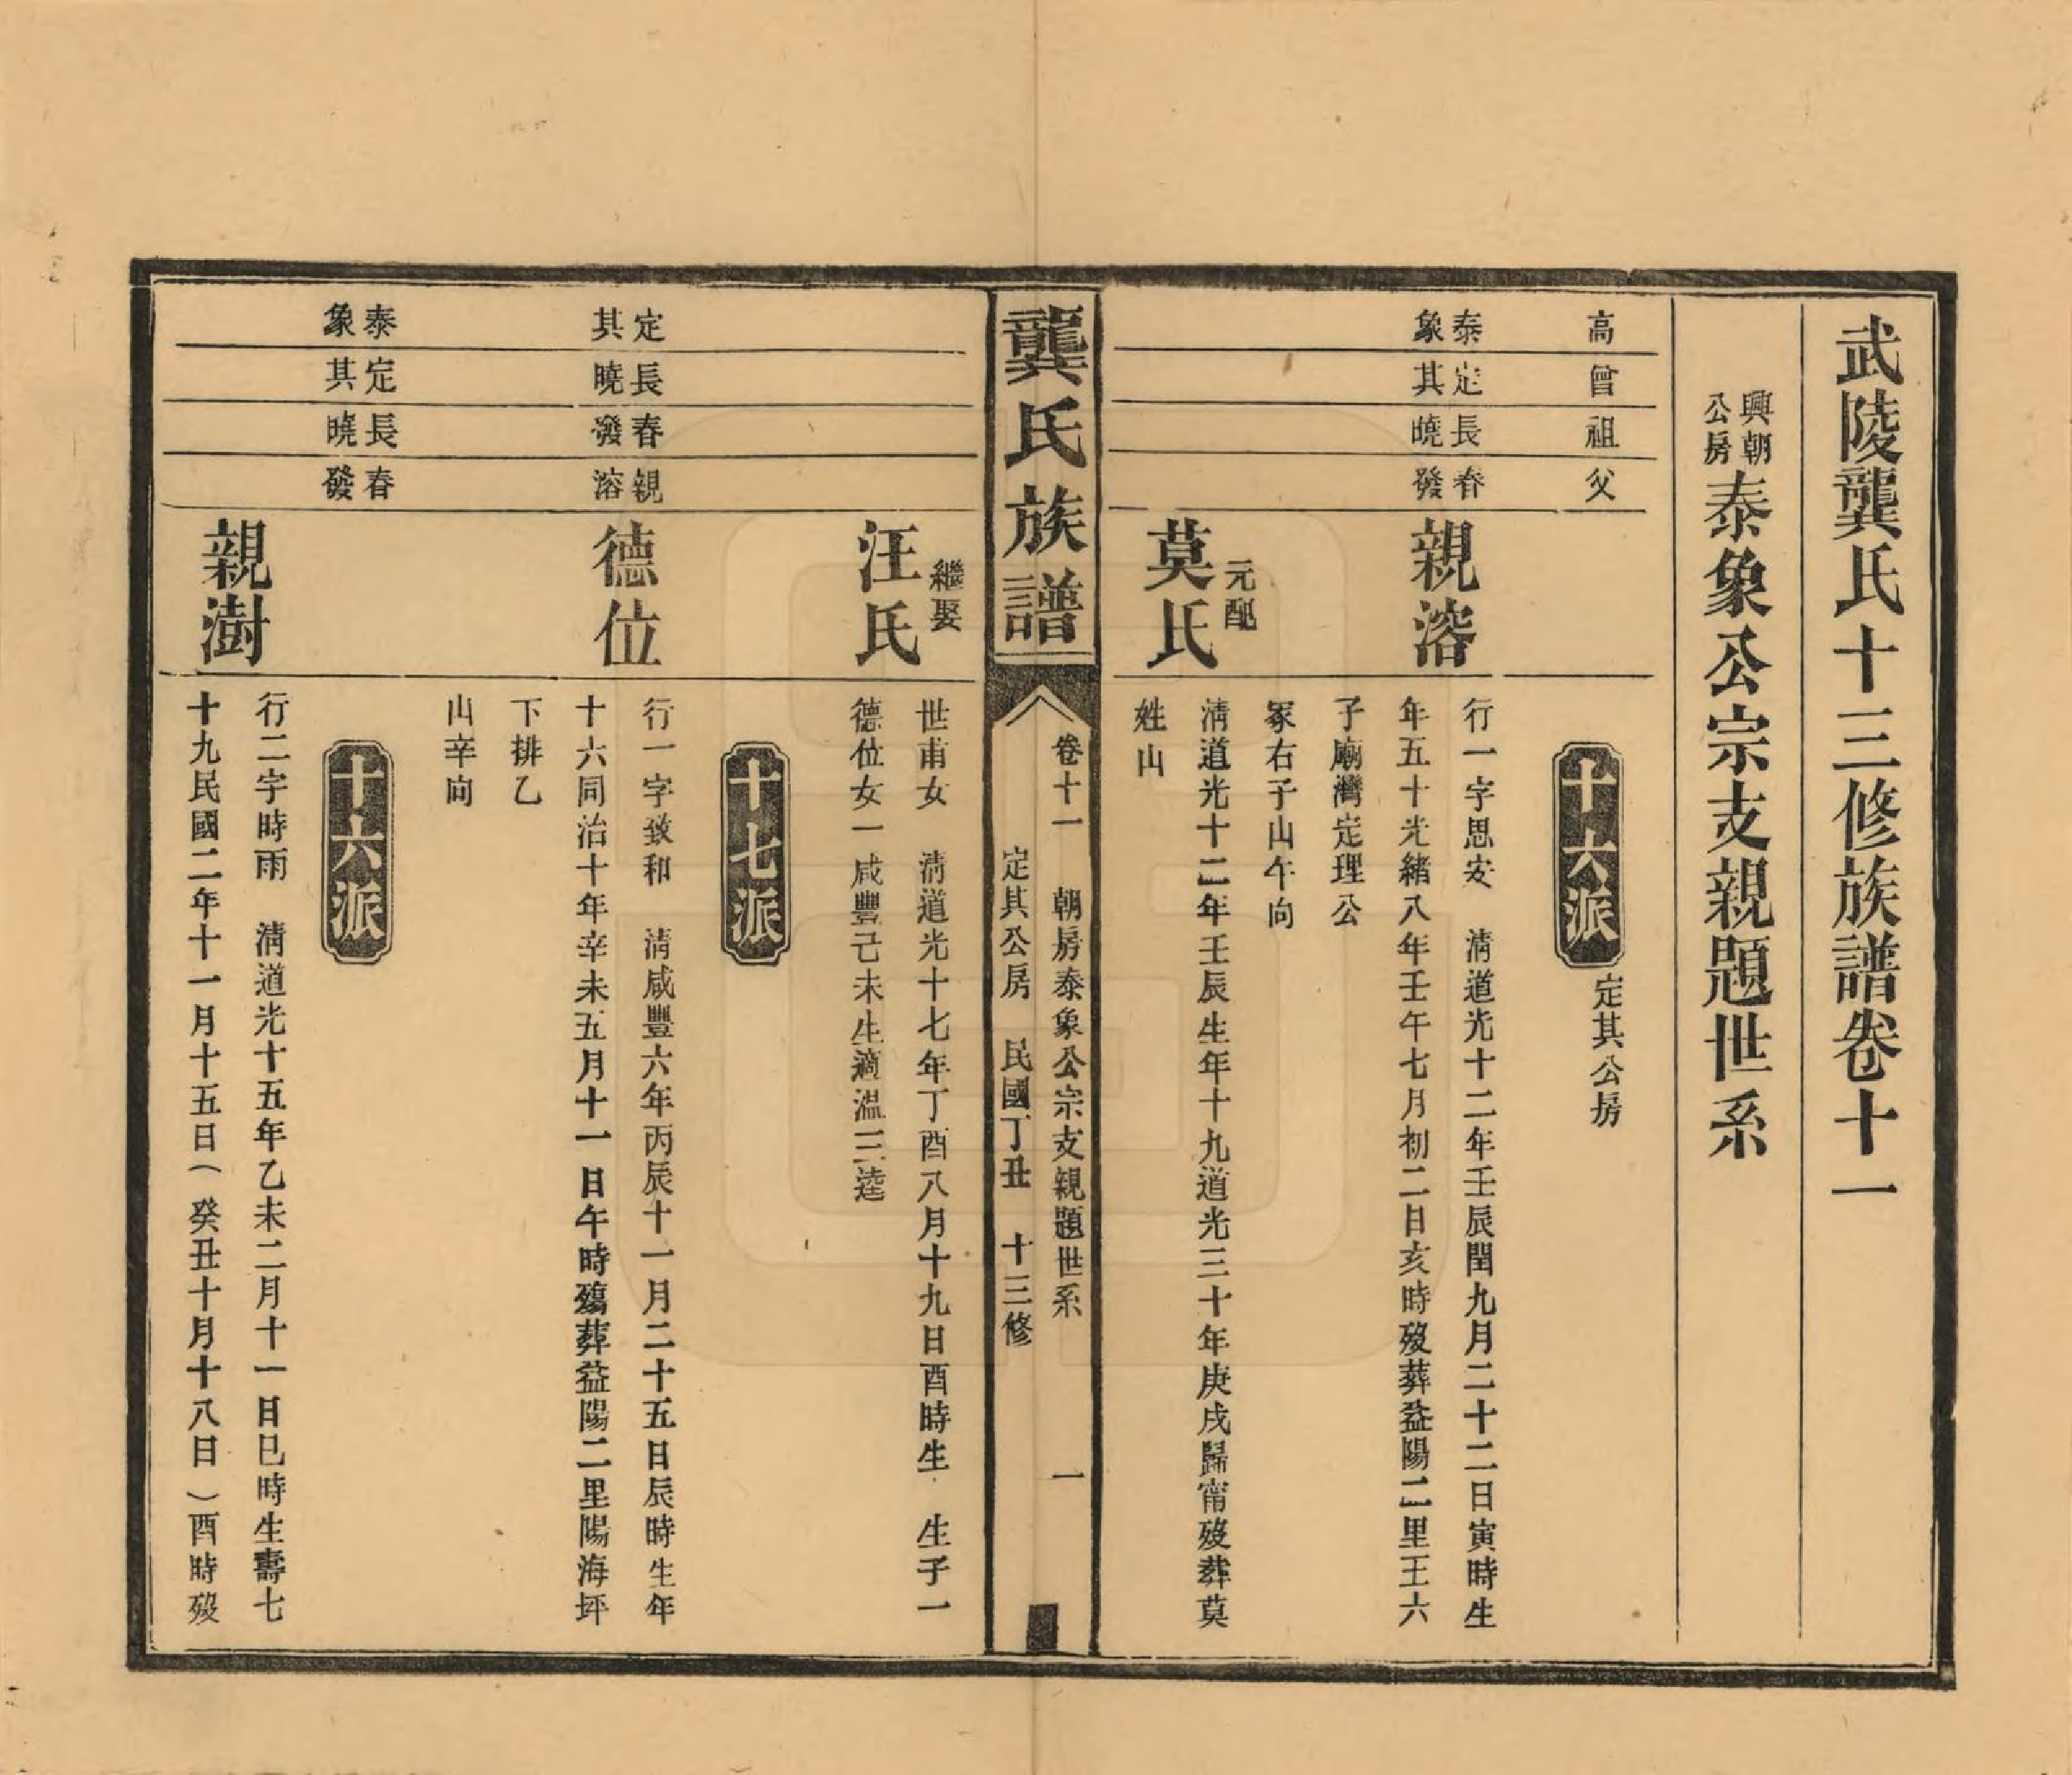 武陵龔氏十三修族譜卷十一
興朝公房
泰象公宗支親題世系
高
曾
祖
父
十六派
定其公房
泰象
定其
長曉
春發
親溶
行一字思安　淸道光十二年壬辰閏九月二十二日寅時生
年五十光緒八年壬午七月初二日亥時歿葬益陽二里王六
子廟灣定理公
冢右子山午向
元配
莫氏
淸道光十二年壬辰生年十九道光三十年庚戌歸甯歿葬莫
姓山
龔氏族譜
卷十一　朝房泰象公宗支親題世系　一
定其公房　民國丁丑　十三修
繼娶
汪氏
世甫女　淸道光十七年丁酉八月十九日酉時生　生子一
德位女一咸豐己未生適溫三逵
十七派
定其
長曉
春發
親溶
德位
行一字致和　淸咸豐六年丙辰十一月二十五日辰時生年
十六同治十年辛未五月十一日午時殤葬益陽二里陽海坪
下排乙
山辛向
十六派
泰象
定其
長曉
春發
親澍
行二字時雨　淸道光十五年乙未二月十一日巳時生壽七
十九民國二年十一月十五日（癸丑十月十八日）酉時歿